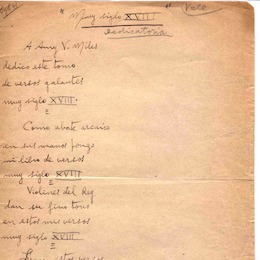 "Muy siglo XVIII"
Dedicatoria
A Amy V. Miles
dedico este tomo
de versos galantes
muy siglo XVIII.
Como abate arcaico
en sus manos pongo
mi libro de versos
muy siglo XVIII
Violines del Rey
dan su fino tono
en estos mis versos
muy siglo XVIII
estos versos